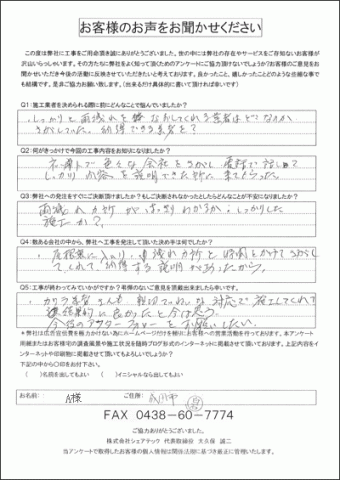 お客様のお声をお聞かせください
この度は弊社に工事をご用命頂き誠にありがとうございました。世の中には弊社の存在やサービスをご存知ないお客様が
沢山いらっしゃいます。その方たちに弊社をよく知って頂くためのアンケートにご協力頂けないでしょうか?お客様のご意見をお
聞かせいただき今後の活動に反映させていただきたいと考えております。良かったこと、嬉しかったことどのような些細な事で
も結構です。是非ご協力お願い致します。(出来るだけ具体的に書いて頂ければ幸いです)
Q1:施工業者を決められる際に前にどんなことで悩んでいましたか?
しっかりと雨漏れを
Q2:何がきっかけで今回の工事内容をお知りになりましたか?
ネットで色々な会社をさがし電話で話し
しっかり内容を説明できた
Q3:弊社への発注をすぐにご決断頂けましたか?もしご決断されなかったとしたらどんなことが不安になりましたか?
雨漏れカ所がはっきりわかるか しっかりした
施工か?
Q4:数ある会社の中から、弊社へ工事を発注して頂いた決め手は何でしたか?
屋根裏に入り、雨漏れカ所と時間をかけてさがし
てくれて、納得する説明があったから。
Q5:工事が終わってみていかがですか?率直のないご意見を頂戴出来ましたら幸いです。
対応で施工してくれて
結果的に良かったと今は思う。
今後のアフターフォローをお願いしたい。
*弊社は広告宣伝費を極力かけない為にホームページだけを頼りにお客様への営業活動を行っております。本アンケート
用紙またはお客様宅の調査風景や施工状況を随時ブログ形式のインターネットに掲載させて頂いております。上記内容をイ
ンターネットや印刷物に掲載させて頂いてもよろしいでしょうか?
下記の中から〇印をお付け下さい。
( )名前を出してもよい ( )イニシャルなら出してもよい
お名前: A様 ご住所:
FAX 0438-60-7774
ご協力ありがとうございました。
株式会社シェアテック 代表取締役 大久保 誠二
当アンケートで取得したお客様の個人情報は関係法令に基づき厳正に管理いたします。